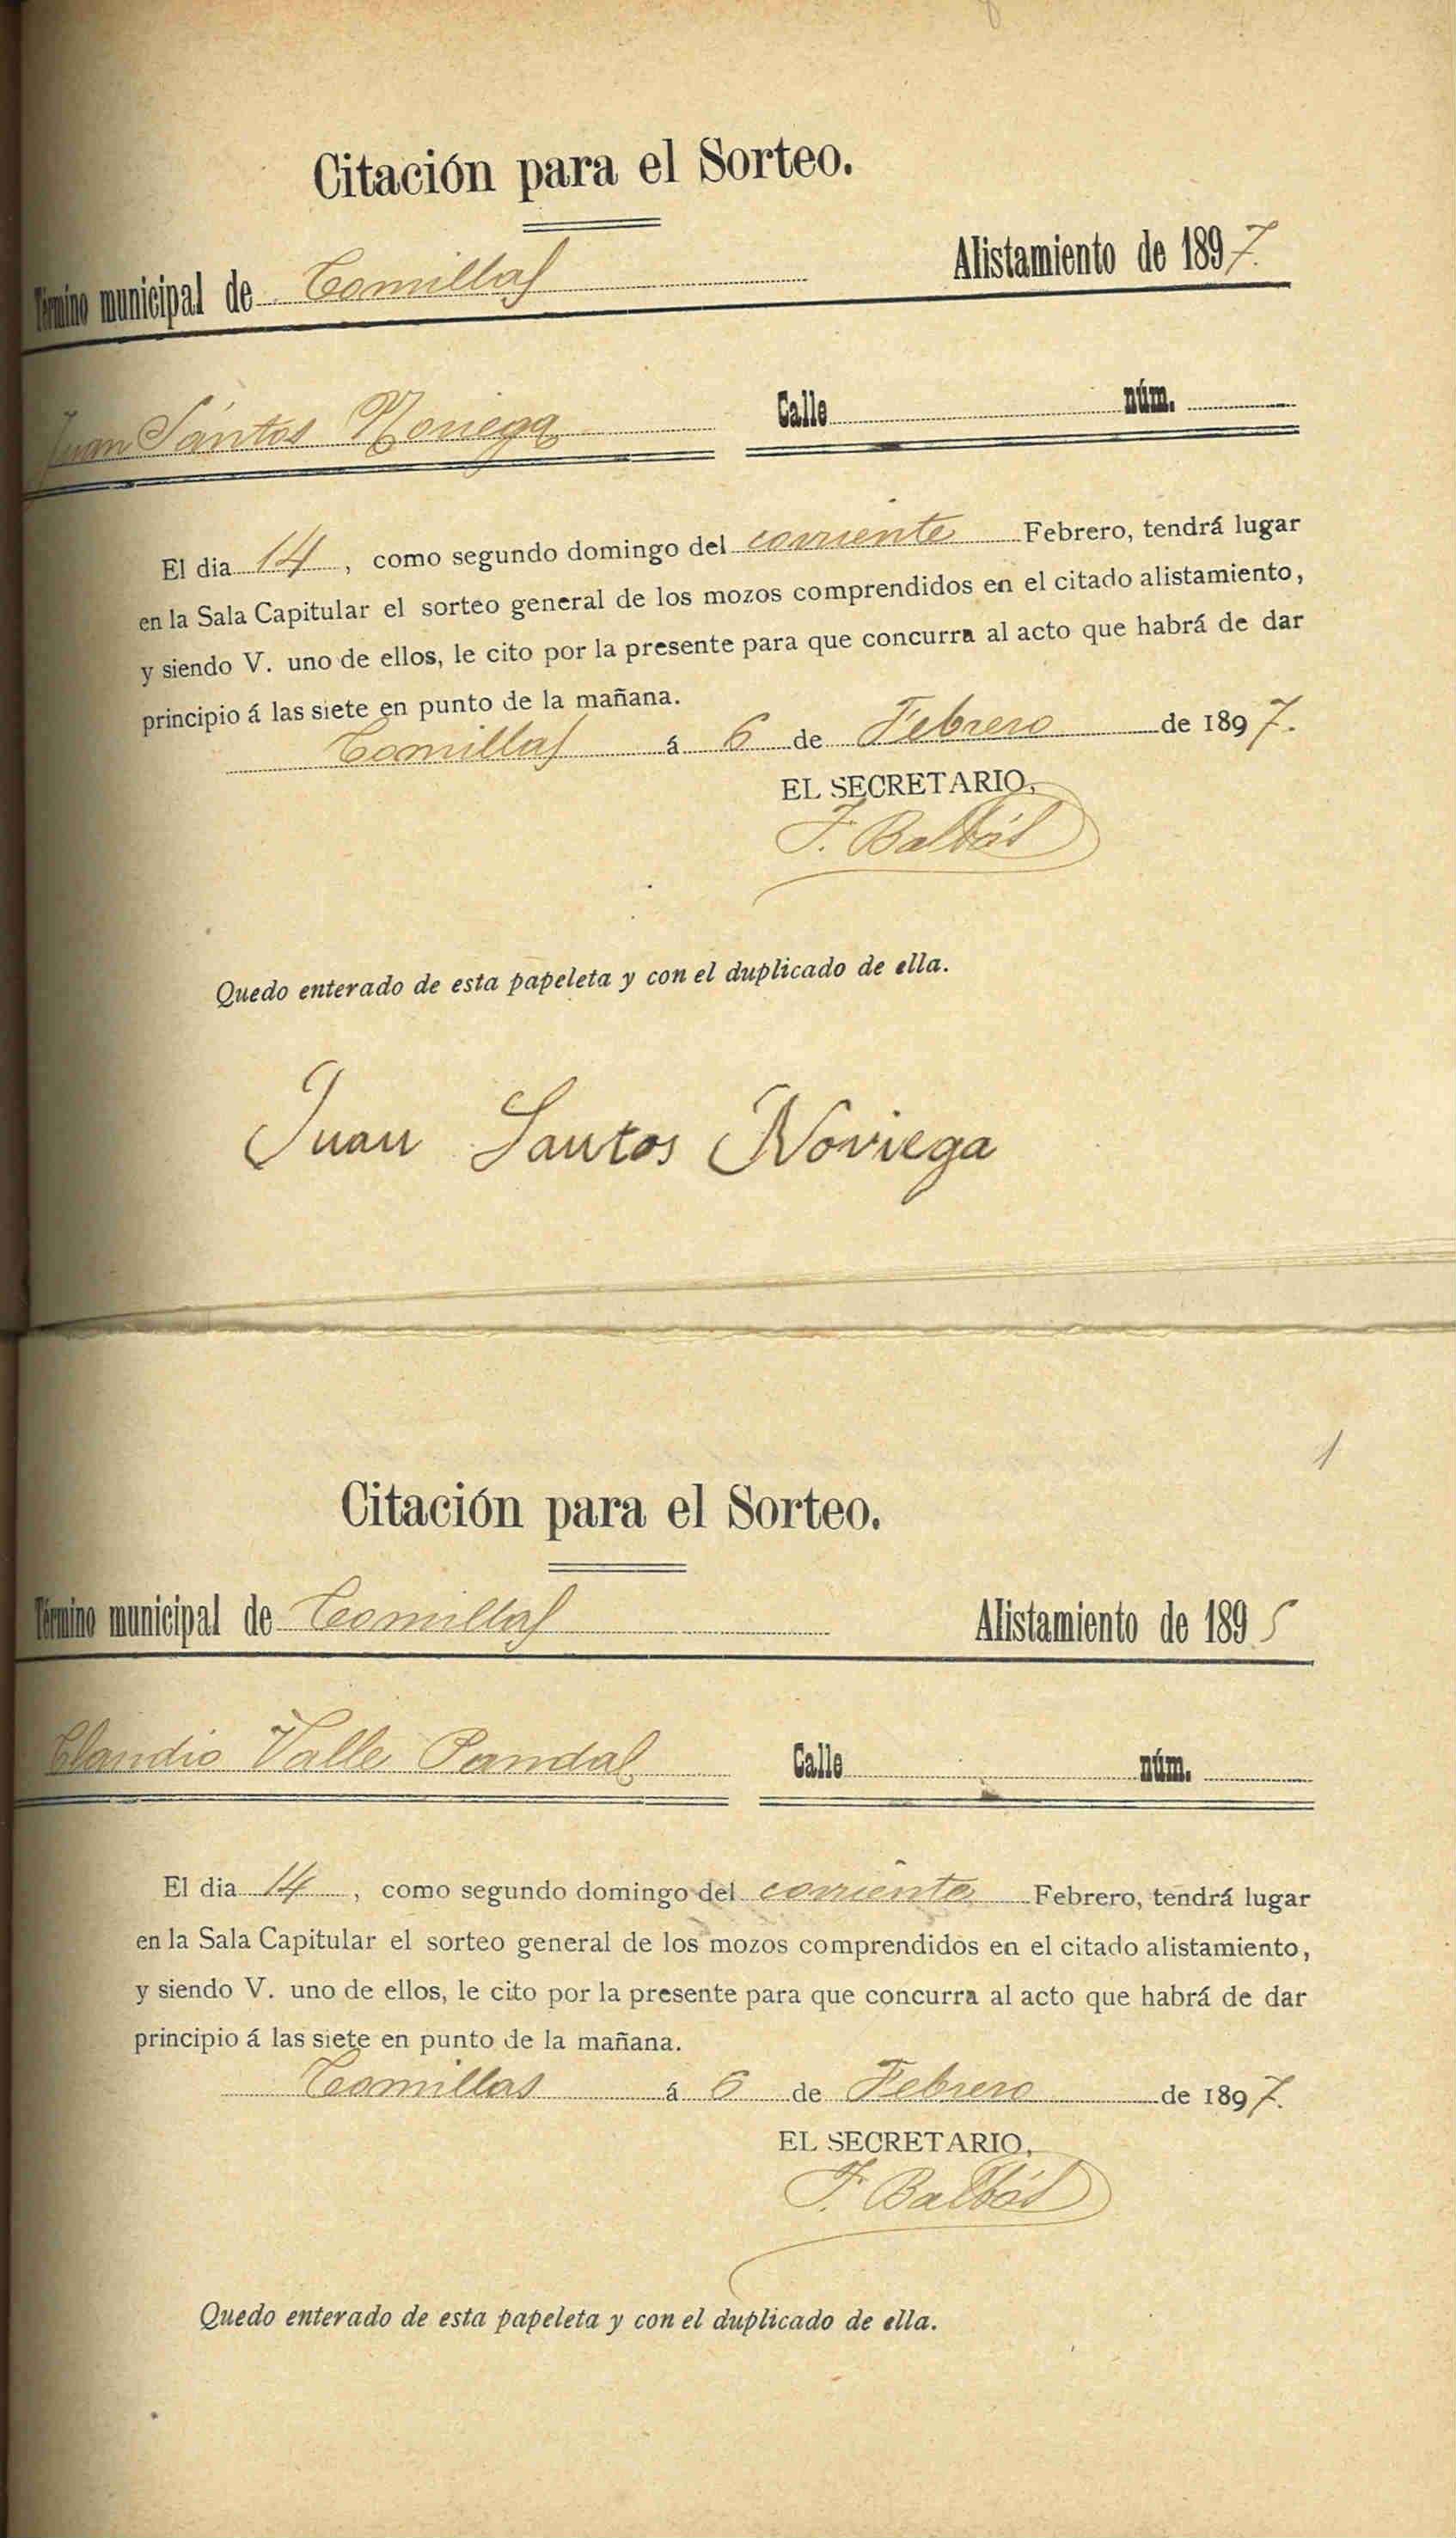 Citación para el Sorteo.
Término municipal de Comillas Alistamiento de 1897.
Juan Santos Noriega Calle núm.
El dia 14, como segundo domingo del corriente Febrero, tendrá lugar
en la Sala Capitular el sorteo general de los mozos comprendidos en el citado alistamiento,
y siendo V. uno de ellos, le cito por la presente para que concurra al acto que habrá de dar
principio á las siete en punto de la mañana.
Comillas á 6 de Febrero de 1897.
EL SECRETARIO,
F. Balbás
Quedo enterado de esta papeleta y con el duplicado de ella.
Juan Santos Noriega
1
Citación para el Sorteo.
Término municipal de Comillas Alistamiento de 1895
Claudio Valle Pandal Calle núm.
El dia 14, como segundo domingo del corriente Febrero, tendrá lugar
en la Sala Capitular el sorteo general de los mozos comprendidos en el citado alistamiento,
y siendo V. uno de ellos, le cito por la presente para que concurra al acto que habrá de dar
principio á las siete en punto de la mañana.
Comillas á 6 de Febrero de 1897.
EL SECRETARIO,
F. Balbás
Quedo enterado de esta papeleta y con el duplicado de ella.